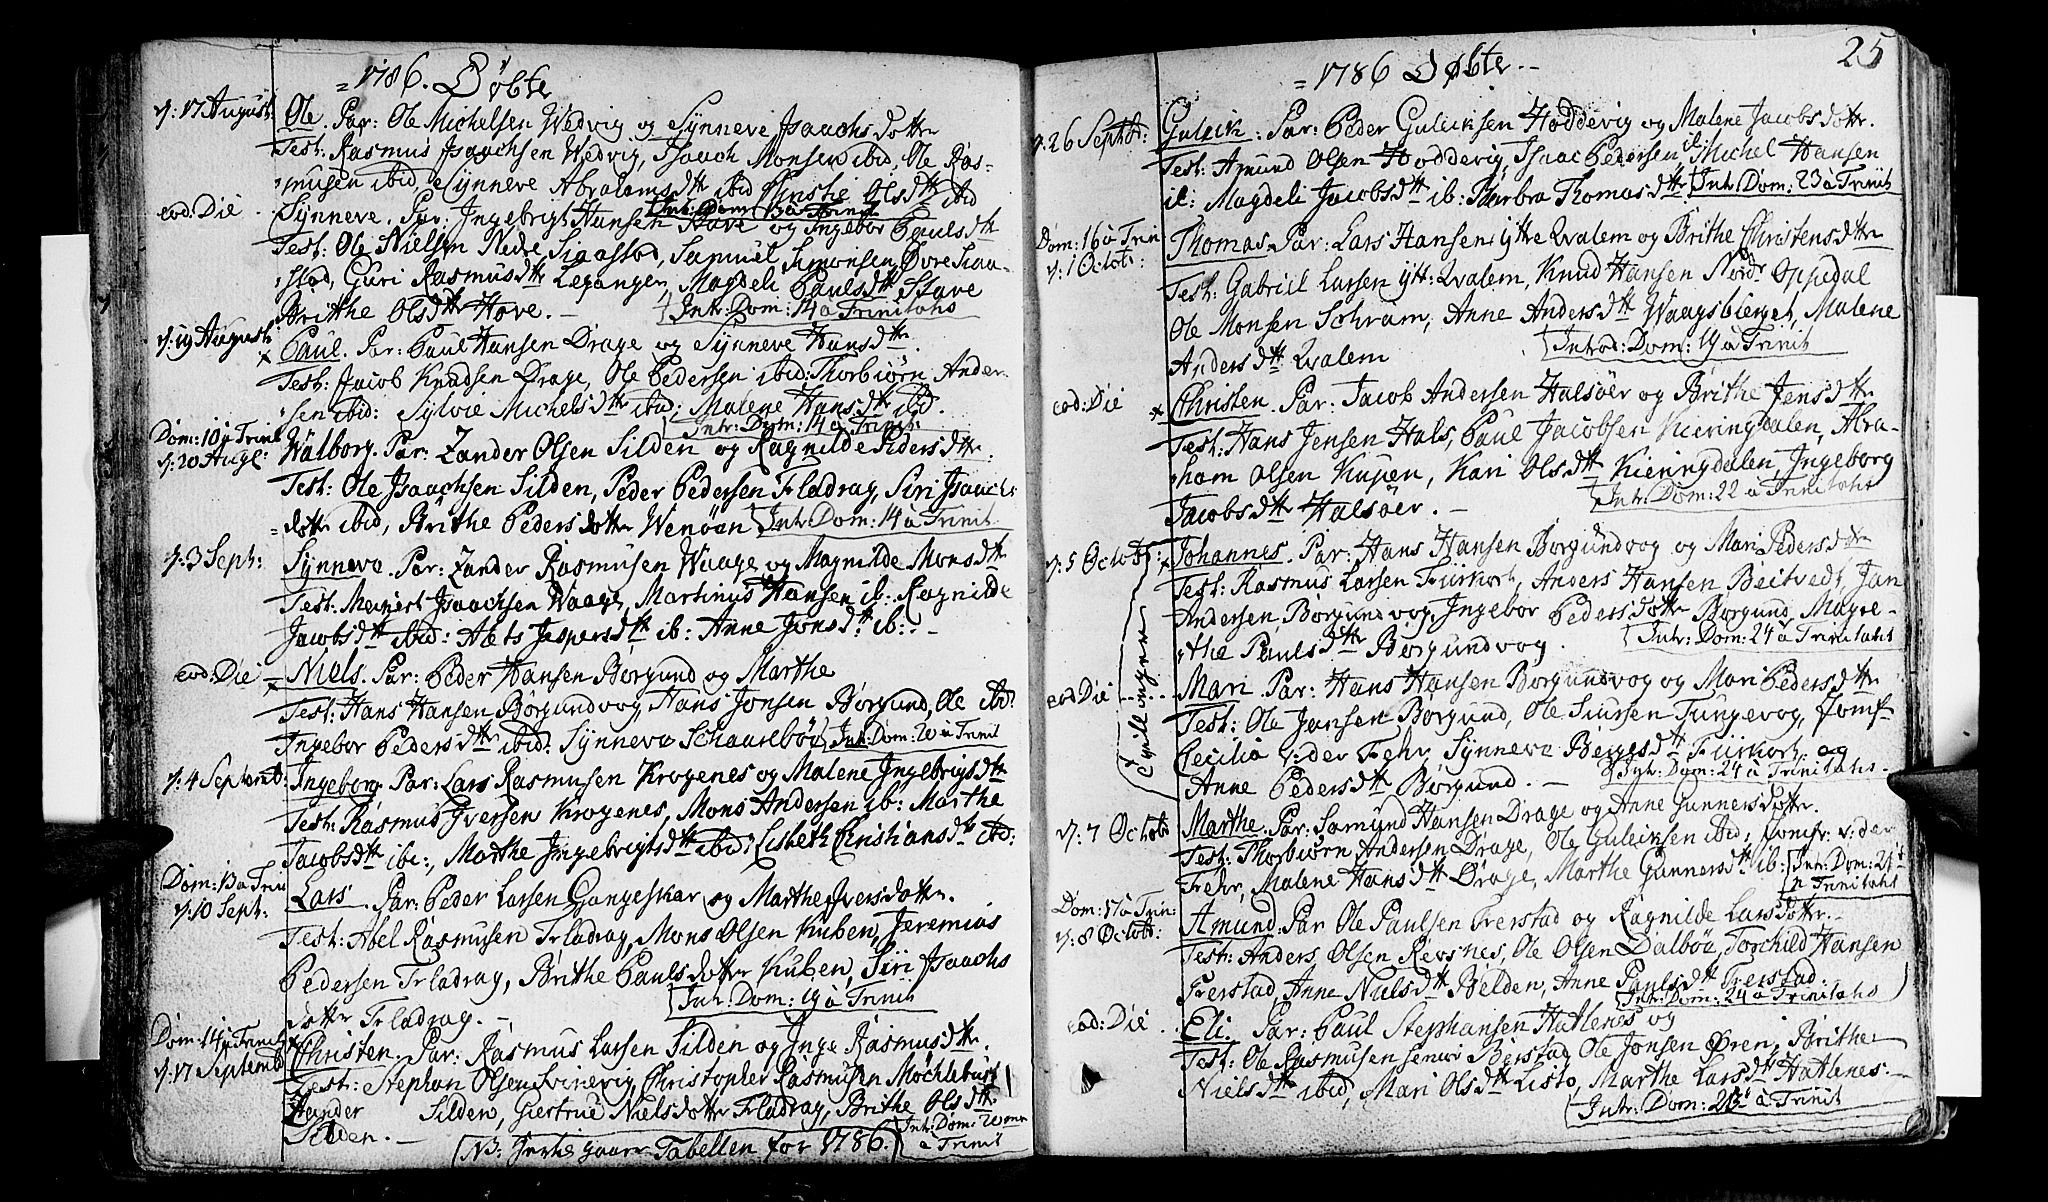 = 1786. Døbte
d: 17 August Ole. Par: Ole Michelsen Wedvig og Synneve Isaachsdotte
Test: Rasmus Isaachsen Wedvig, Isaach Monsen ibid, Ole Ras-
musen ibid, Synneve Abrahamsdtt ibid Christie Olsdtt ibid
Intr: Dom: 13 a Trinit
eod: Die Synneve. Par. Ingebrigt Hansen Hove og Ingebor Paulsdtt
Test: Ole Nielsen Nedre Siaastad, Samuel Simonsen Øvre Siaa-
stad, Guri Rasmusdtt Leganger, Magdeli Paulsdtt Stave
Brithe Olsdtr Hove. — Intr: Dom: 14 a Trinitatis
d: 19 August: × Paul. Par: Paul Hansen Drage og Synneve Hansdtt.
Test: Jacob Knudsen Drage, Ole Pedersen ibid: Thorbiørn Ander-
sen ibid: Sylvie Michelsdtt ibid; Malene Hansdtt ibid.
Intr: Dom: 14 a Trinit:
Dom: 10 p Trinit
d: 20 Aug: Walborg. Par: Zander Olsen Silden og Ragnilde Pedersdtt.
Test: Ole Isaachsen Silden, Peder Pedersen Fladrag, Siri Isaachs
dotte ibid, Brithe Pedersdotte Wenøan Intr: Dom: 14 a Trinit
d: 3 Sept: Synneva. Par: Zander Rasmusen Waage og Magnilde Monsdtt
Test: Meinert Isaachsen Waage, Martinus Hansen ib: Ragnilde
Jacobsdtt ibid: Alets Jespersdtt ib: Anne Jonsdtt ib: -
eod: Die × Niels. Par: Peder Hansen Borgund og Marthe
Test: Hans Hansen Borgundvog, Hans Jonsen Borgund, Ole ibd:
Ingebor Pedersdtt ibid. Synneva Schaarebøe Intr: Dom: 20 a Trinit
d: 4 Septemb: Ingeborg. Par: Lars Rasmusen Krogenes og Malene Ingebrigsdtt
Test: Rasmus Iversen Krogenes, Mons Andersen ib: Marthe
Jacobsdtt ib:, Marthe Ingebrigtsdtt ibid: Lisbeth Christiansdtt ibd:
Dom: 13 a Trini
d: 10 Sept: Lars. Par: Peder Larsen Gangeskar og Marthe Iversdotte.
Test: Abel Rasmusen Fladrag, Mons Olsen Kuben, Jeremias
Pedersen Fladrag, Brithe Paulsdotte Kuben, Siri Isaachs
dotte Fladrag. — Intr: Dom: 19 a Trinit
Dom: 14 p Trinit
d: 17 Septemb × Christen. Par: Rasmus Larsen Silden og Inge Rasmusdtt.
Test: Stephan Olsen Svinevig, Christopher Rasmusen Mochlebust
Zander Silden, Giertrue Nielsdotte Fladrag, Brithe Olsdtt
Silden. — Intr: Dom: 20 a Trinit
NB: Indtil gaaer Tabellen for 1786.
25
= 1786 Døbte. -
d. 26 Septbr: Guleik. Par: Peder Guleiksen Hoddevig og Malene Jacobsdotte.
Test: Amund Olsen Hoddevig, Isaac Pedersen ib: Michel Hansen
ib: Magdeli Jacobsdtt ib: Barbra Thomasdtt Intr: Dom: 23 a Trinit
Dom: 16 a Trin
d: 1 Octob: Thomas. Par: Lars Hansen ytre Qvalem og Brithe Christensdtt
Test: Gabriel Larsen ytt: Qvalem, Knud Hansen Nordr Oppedal
Ole Monsen Schram, Anne Andersdtt Waagsbierget, Malene
Andersdtt Qvalem Introd: Dom: 19 a Trinit
eod: Die × Christen. Par: Jacob Andersen Halsøer og Brithe Jensdtt
Test: Hans Jensen Hals, Paul Jacobsen Kieringdalen, Abra-
ham Olsen Kupen, Kari Olsdtt Kieringdalen, Ingeborg
Jacobsdtt Halsøer. — Intr: Dom: 22 a Trinitatis
d: 5 Octob: × Johannes. Par: Hans Hansen Borgundvog og Mari Pedersdtt
Test: Rasmus Larsen Fiirkort, Anders Hansen Beitvedt, Jan
Andersen, Borgundvog, Ingebor Pedersdotte Borgund, Magre-
the Paulsdtt Borgundvog. Intr: Dom: 24 a Trinitatis
Tvillinger
eod Die Mari. Par: Hans Hansen Borgundvog og Mari Pedersdtt
Test: Ole Jansen Borgund, Ole Siursen Tungevog, Jomf
Cecilia v: der Fehr, Synneva Børgesdtt Fiirkort: og
Anne Pedersdtt Borgund. — Intr: Dom: 24 a Trinitatis.
d: 7 Octob Marthe. Par: Samund Hansen Drage og Anne Gunnersdotte.
Test: Thorbiørn Andersen Drage, Ole Guleiksen ibid; Jomfr: v: der
Fehr, Malene Hansdtt Drage, Marthe Gunnersdtt ib: Intr: Dom: 21
a Trinitatis
Dom: 17 a Trin:
d: 8 Octob: Amund. Par Ole Paulsen Frerstad og Ragnilde Larsdotte. -
Test: Anders Olsen Revsnes, Ole Olsen Dalbøe, Torchild Hansen
Frerstad, Anne Nielsdtt Belden, Anne Paulsdtt Frerstad.
Intr: Dom: 24 a Trinitatis
eod: Die Eli. Par: Paul Stephansen Hatlenes og
Test: Ole Rasmusen senior Berstad, Ole Jonsen Øren, Brithe
Nielsdtt ibid, Mari Olsdtt Listo, Marthe Larsdtt Hatlenes. -
Intr: Dom: 23 a Trinit